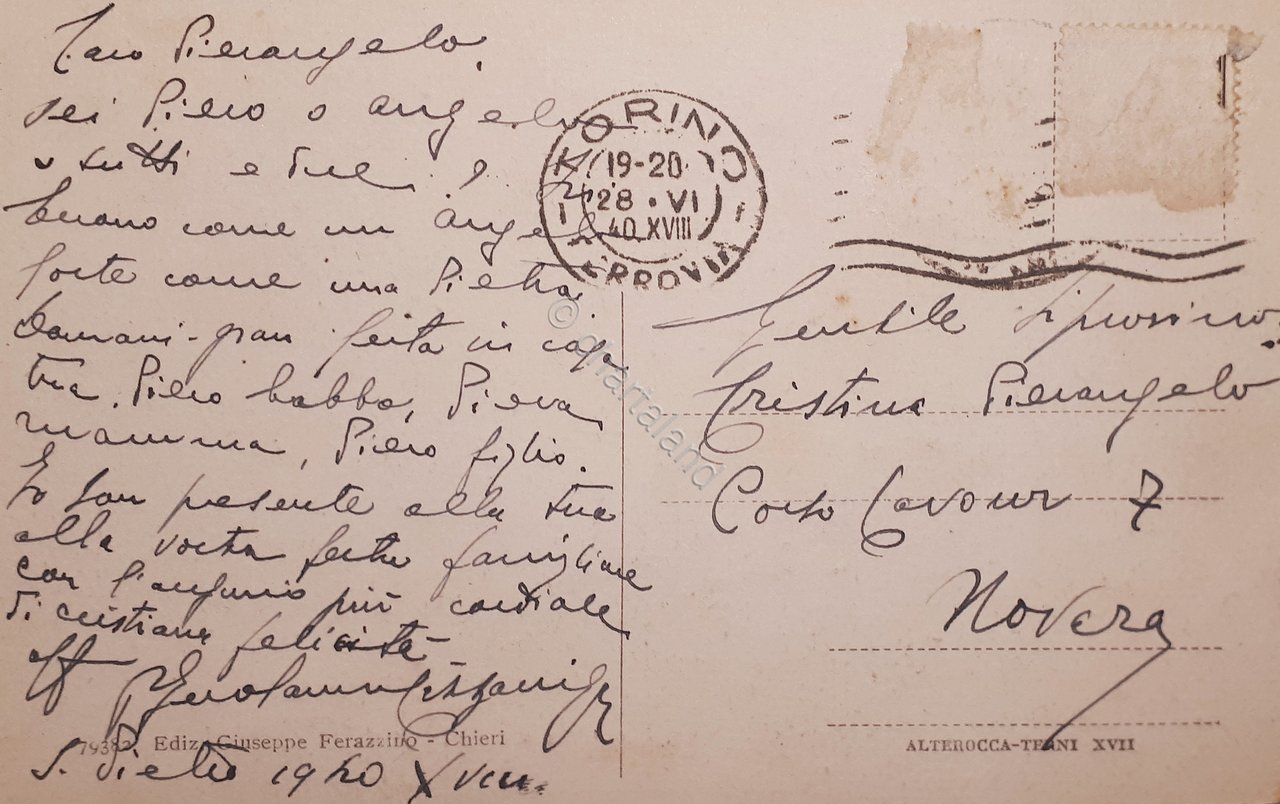 Caro Pierangelo,
sei Piero o angelo
o tutti e due?
buono come un angelo
forte come una Pietra
Domani gran festa in casa
tua. Piero babbo, Piera
mamma, Piero figlio.
Io son presente alla tua
alla vostra festa famigliare
con l'augurio più cordiale
di cristiana felicità
aff
S. Pietro 1940 XVIII.
79382 Ediz. Giuseppe Ferazzino - Chieri
TORINO
19-20
28 · VI
40. XVIII
FERROVIA
Gentile Signorino
Cristina Pierangelo
Corso Cavour 7
Novara
ALTEROCCA-TERNI XVII
© chartaland